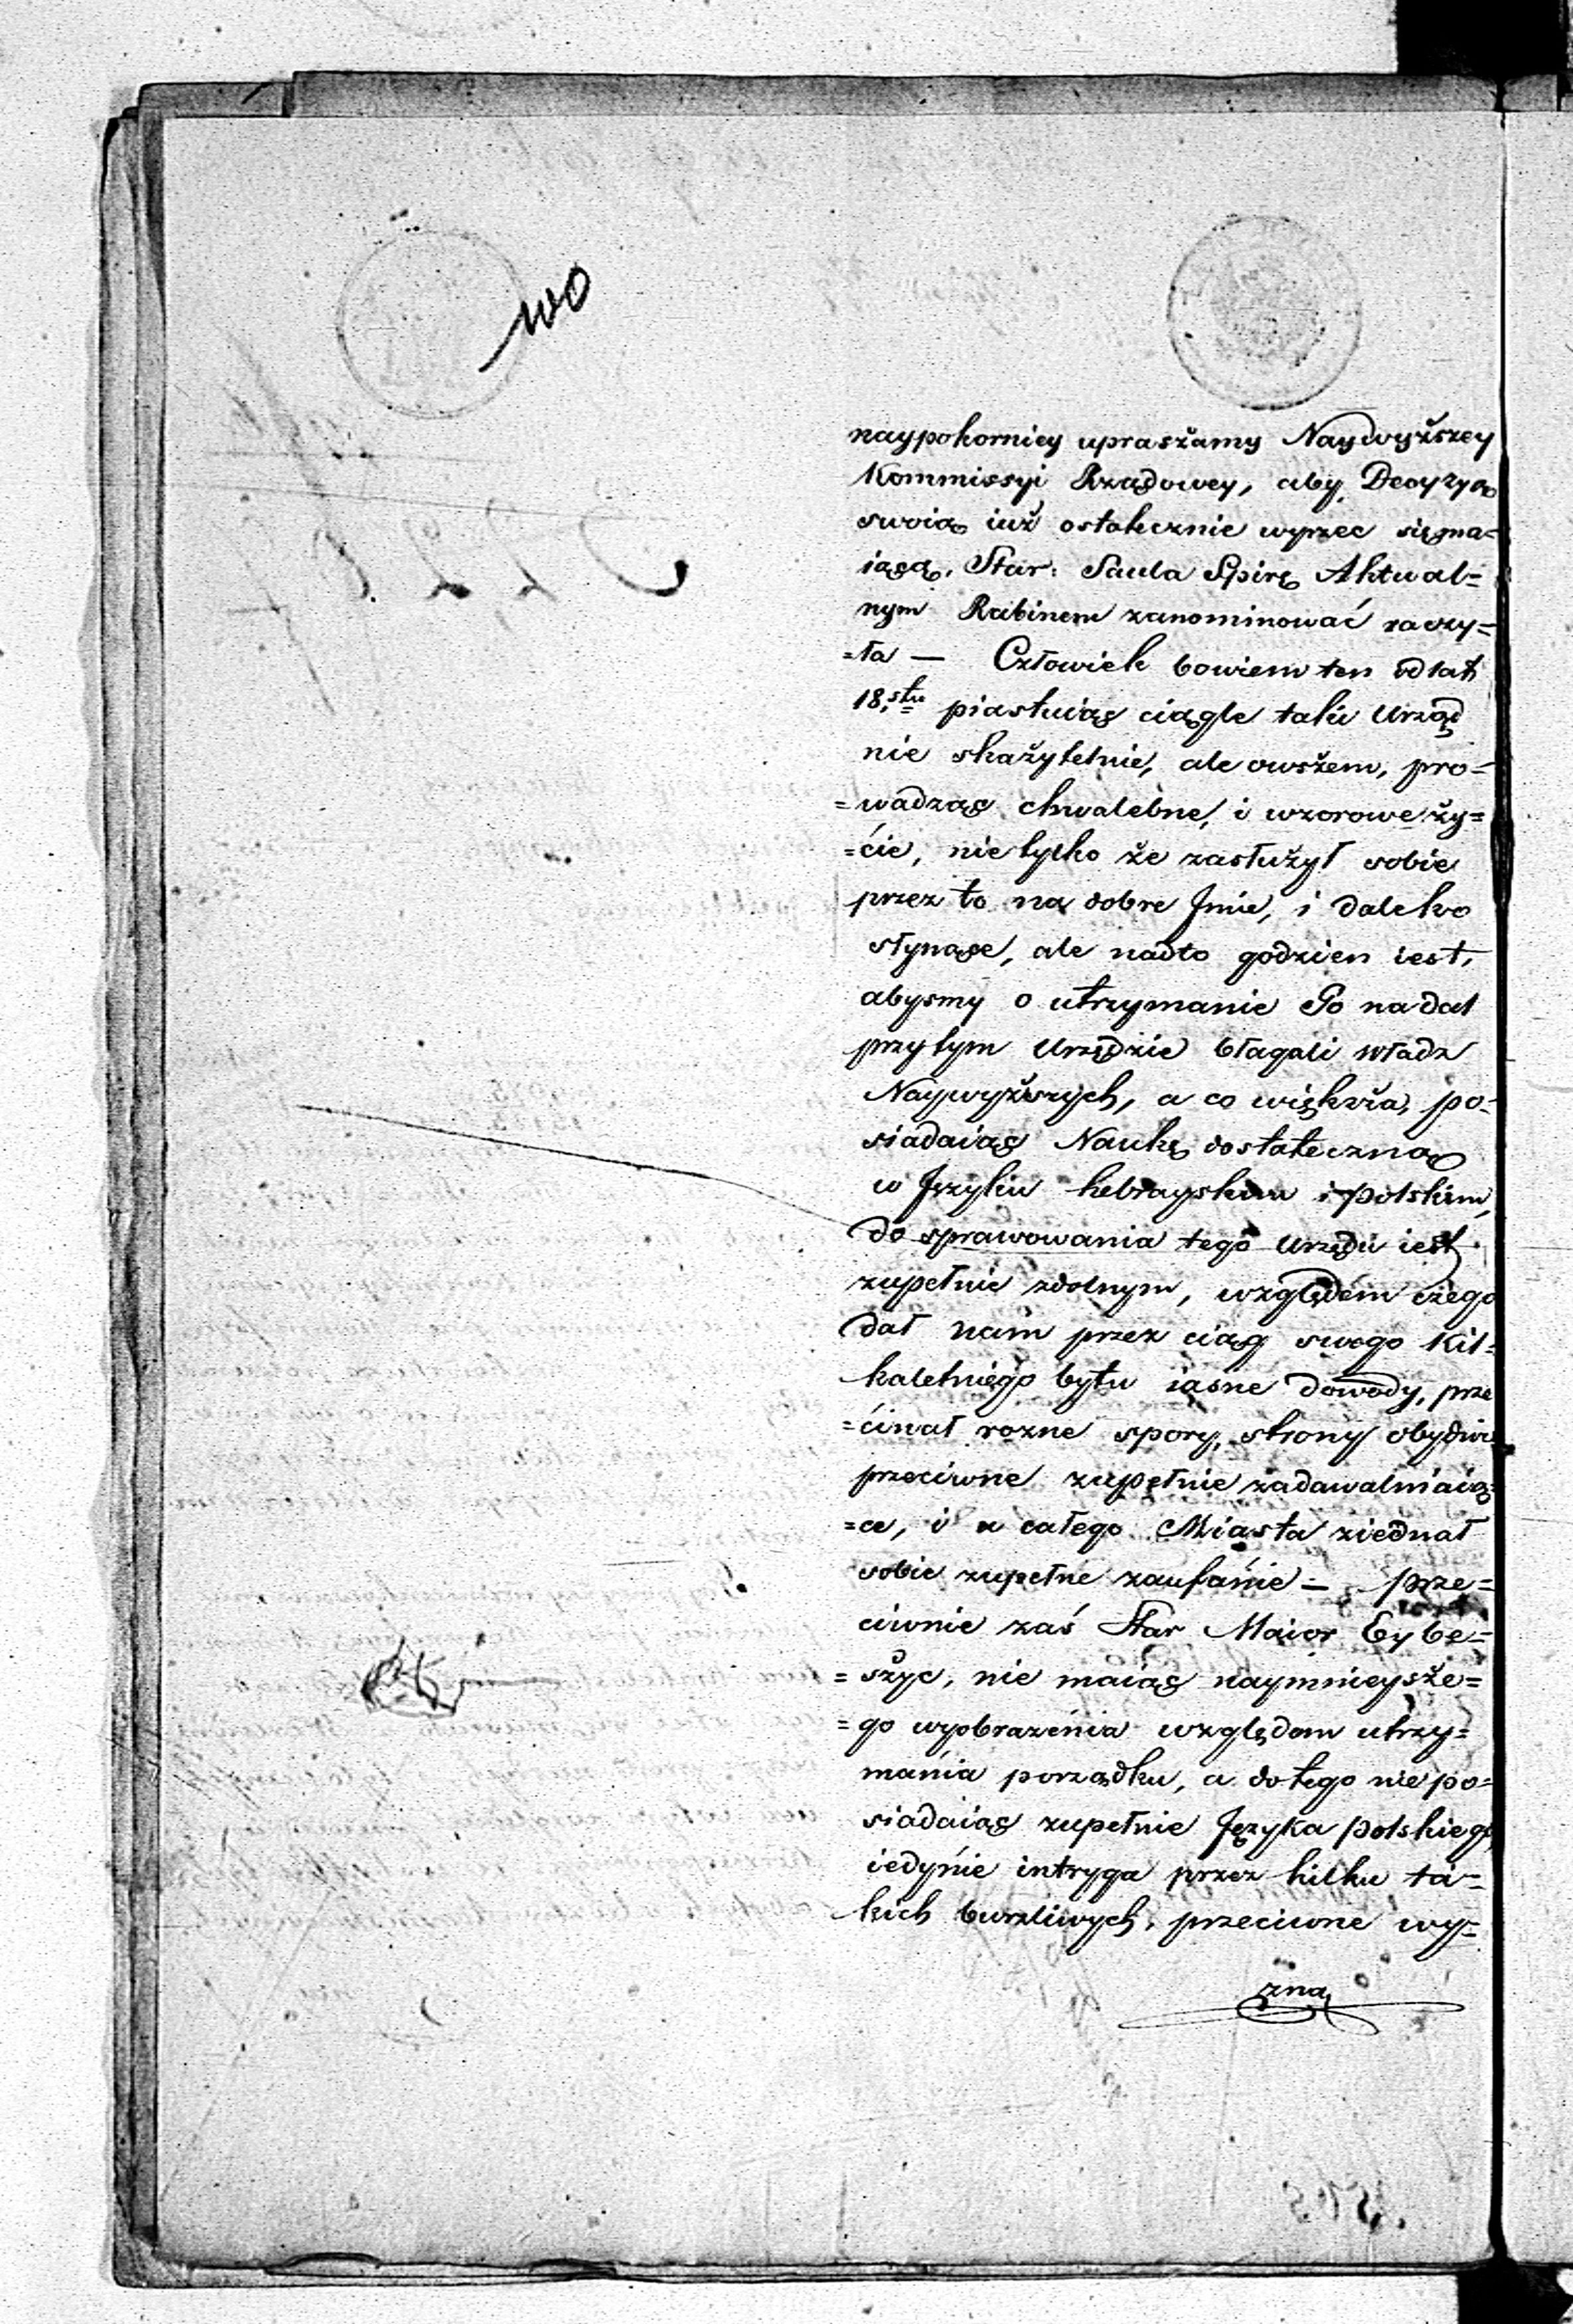 100
naypokorniey upraszamy Naywyższey
Kommissyi Rządowey, aby Decyzyą
swoią iuż ostatecznie wyrzec się ma-
iącą, Star: Saula Spirę Aktual=
nym Rabinem zanominować raczy=
=ła — Człowiek bowiem ten od lat
18,stu piastuiąc ciągle takie Urząd
nie skazytelnie, ale owszem, pro=
=wadząc chwalebne, i wzorowe ży=
=ćie, nie tylko że zasłużył sobie
przez to na dobre Jmie, i daleko
słynące, ale nadto godzien iest,
abysmy o utrzymanie Go nadal
przy tym Urzędzie błagali władz
Naywyższych, a co większa, po=
siadaiąc Naukę dostateczną
w Języku hebrayskim i polskim,
do sprawowania tego Urzędu iest
zupełnie zdolnym, względem czego
dał nam przez ciąg swego kil=
kaletniego bytu iasne dowody, prze
=ćinał rozne spory, strony obydwie
przeciwne zupełnie zadawalniaią=
=ce, i u całego Miasta ziednał
sobie zupełne zaufanie — prze=
ciwnie zaś Star Maior Eybe=
=szyc, nie maiąc naymnieysze=
=go wyobrażenia względem utrzy=
mania porządku, a do tego nie po=
siadaiąc zupełnie Języka polskiego
iedynie intryga przez kilku ta=
kich burzliwych, przeciwne wy=
zna